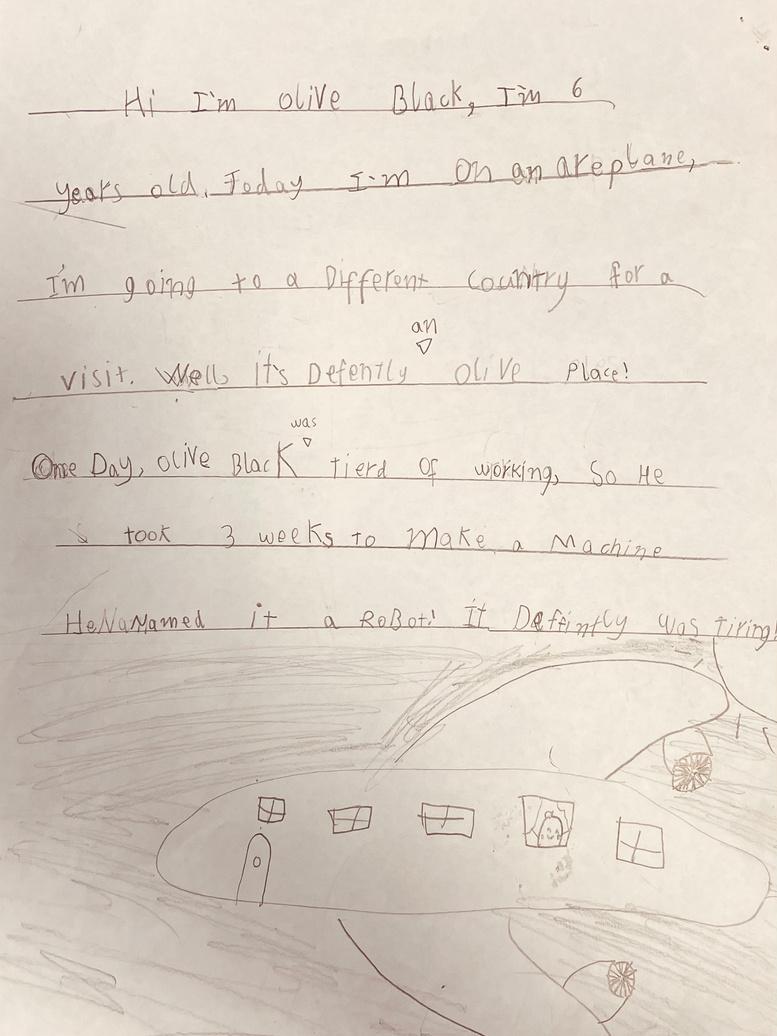 Hi I'm olive Black, I'm 6
years old. Today I'm On an areplane,
I'm going to a Different Country for a
an
visit. Well it's Defently olive Place!
was
One Day, olive Black tierd of working, So He
took 3 weeks to make a Machine
He NaNamed it a RoBot! It Deffintly was tiring!